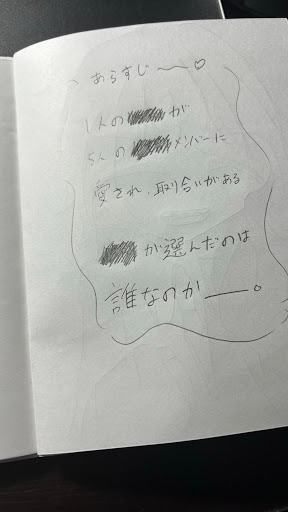 あらすじ——♡
1人の が
5人の メンバーに
愛され、取り合いがある
が選んだのは
誰なのか——。